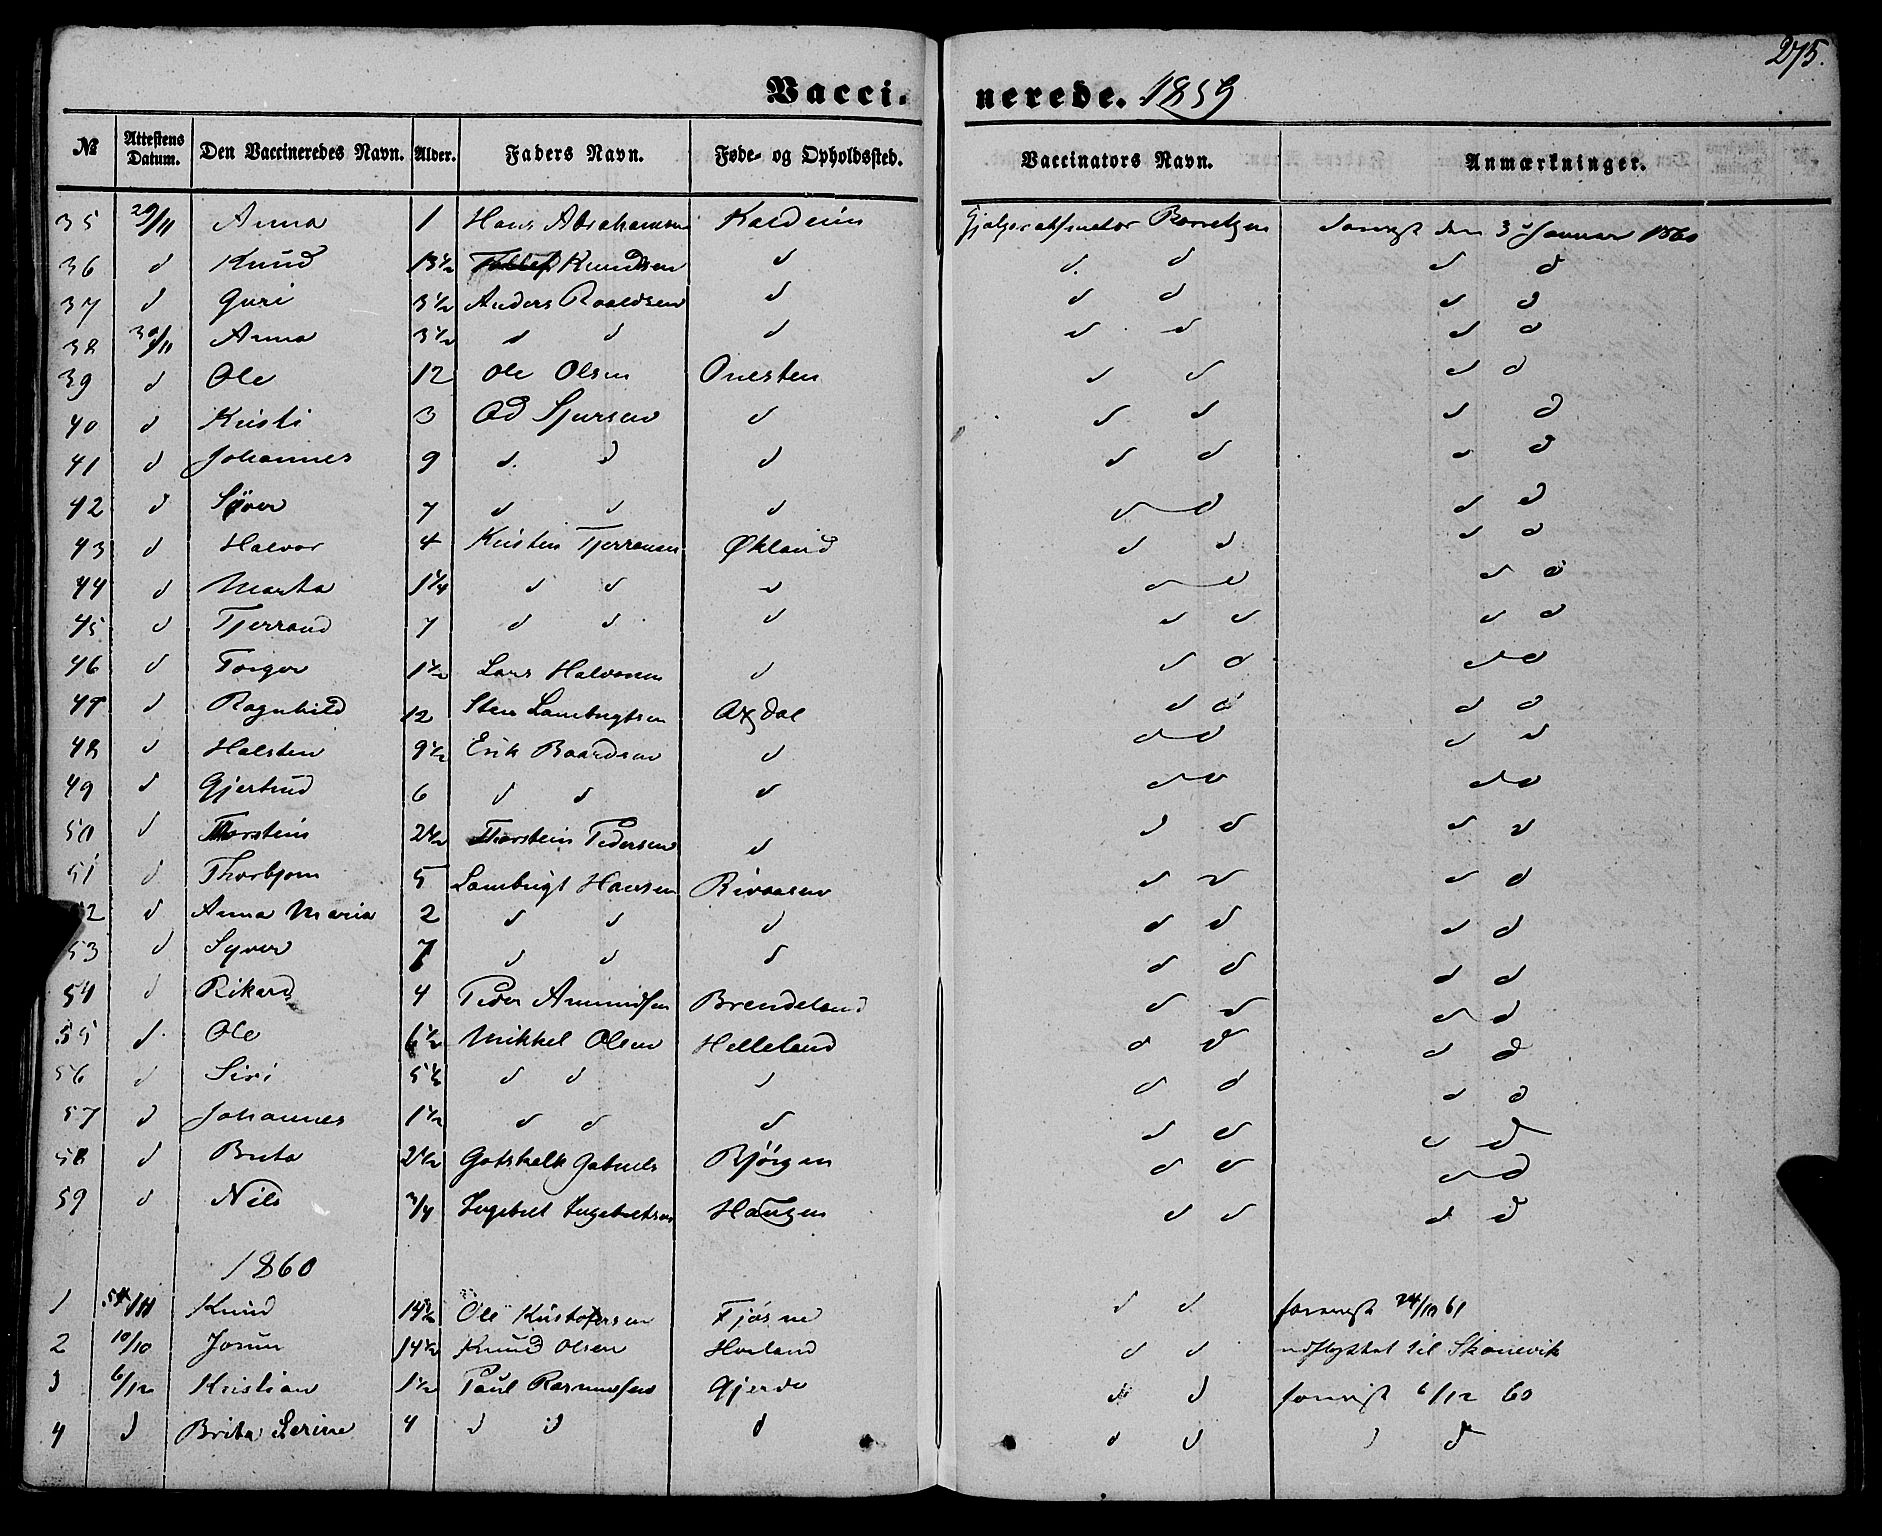 275.
Vaccinerede. 1859
№ Attestens Datum. Den Vaccineredes Navn. Alder. Faders Navn. Føde- og Opholdssted. Vaccinators Navn. Anmærkninger.
35 29/11 Anna 1 Hans Abrahamsen Kaldeim den 3 Januar 1860
36 d Knud 13½ Knudsen d d d d d
37 d Guri 3½ Anders Roaldsen d d d d d
38 30/11 Anna 3½ d d d d d d d
39 d Ole 12 Ole Olsen Onesten d d d d
40 d Kristi 3 Od Sjursen d d d d d
41 d Johannes 9 d d d d d d d
42 d Syver 7 d d d d d d d
43 d Halvor 4 Kristen Tjerransen Økland d d d d
44 d Marta 1¼ d d d d d d d
45 d Tjerrand 7 d d d d d d d
46 d Torger 1½ Lars Halvorsen d d d d d
47 d Ragnhild 12 Sten Lambregtsen Axdal d d d d
48 d Halsten 9½ Erik Baardsen d d d d d
49 d Gjertrud 6 d d d d d d d
50 d Thorstein 2½ Thorstein Pedersen d d d d d
51 d Thorbjørn 5 Lambrigt Hansen Bivaasen d d d d
52 d Anna Maria 2 d d d d d d d
53 d Syver 7 d d d d d d d
54 d Rikard 4 Peder Amundsen Brendeland d d d d
55 d Ole 6½ Mikkel Olsen Helleland d d d d
56 d Siri 5½ d d d d d d d
57 d Johannes 1½ d d d d d d d
58 d Brita 2½ Gotskalk Gabriels Bjørgen d d d d
59 d Nils 3/4 Ingebret Ingebretsen Haugen d d d d
1860
1 Knud 14½ Ole Kristofersen Fjøsne d d foreviist 24/10 61
2 10/10 Jorun 14½ Knud Olsen Hovland d d udflyttet til Skonevik
3 6/12 Kristian 1½ Poul Rasmussen Gjerde d d foreviist 6/12 60
4 d Brita Serine 4 d d d d d d d